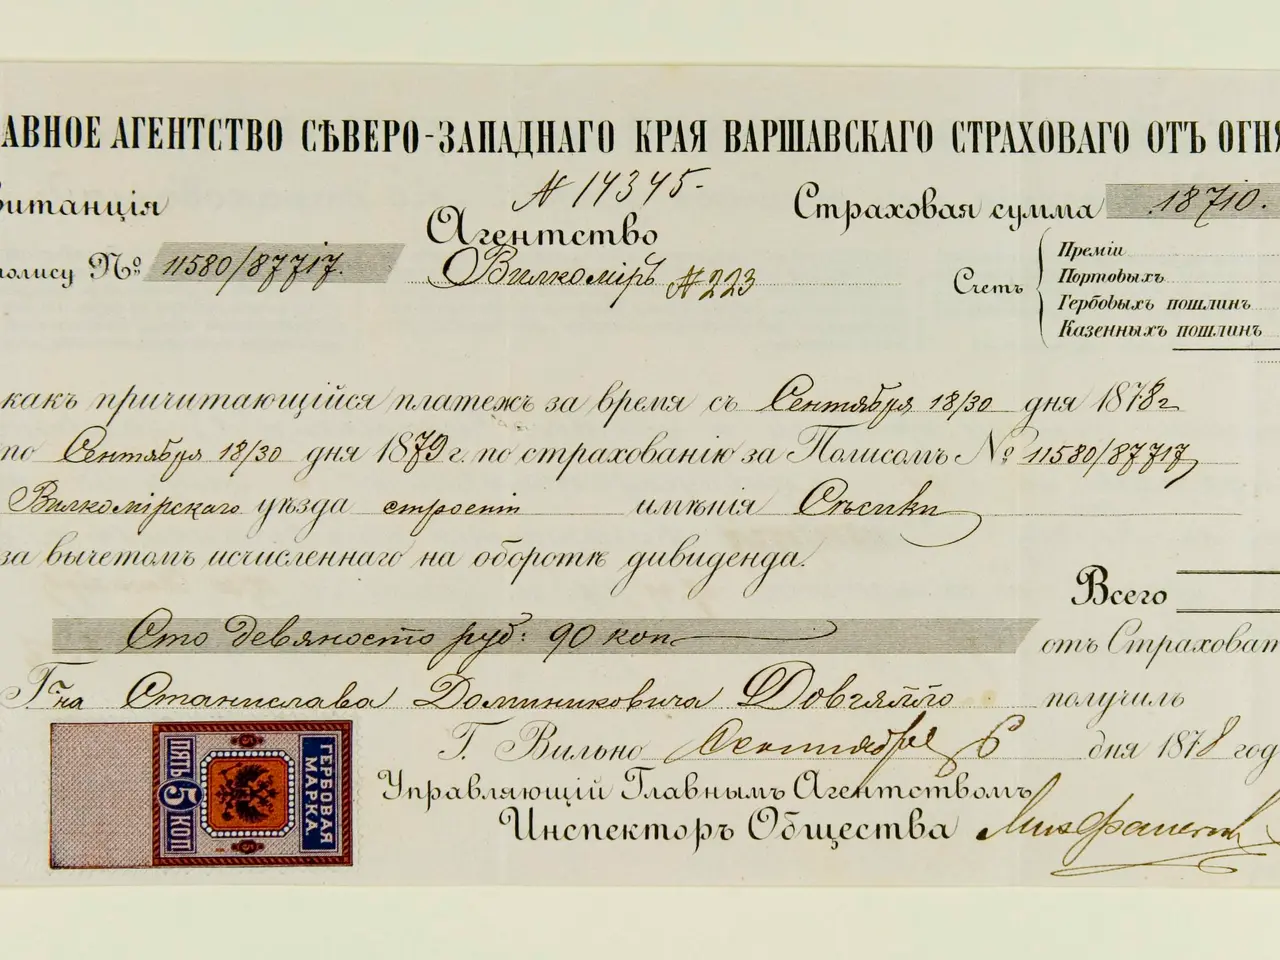 АВНОЕ АГЕНТСТВО СѢВЕРО-ЗАПАДНАГО КРАЯ ВАРШАВСКАГО СТРАХОВАГО ОТЪ ОГНЯ
№ 14345-
витанцiя
Агентство
Страховая сумма 18710.
полису № 11580/87717.
Вилкомiръ № 223
Счетъ
Премiи
Портовыхъ
Гербовыхъ пошлинъ
Казенныхъ пошлинъ
какъ причитающiйся платежъ за время съ Сентября 18/30 дня 1878 г
по Сентября 18/30 дня 1879 г. по страхованiю за Полисомъ № 11580/87717
Вилкомiрскаго уѣзда строенiй имѣнiя Сѣсики
за вычетомъ исчисленнаго на оборотѣ дивиденда.
Всего
Сто девяносто руб: 90 коп
отъ Страховат
Г-на Станислава Доминиковича Довгялло получилъ
Г. Вильно Сентября 6 дня 1878 год
Управляющiй Главнымъ Агентствомъ
Инспекторъ Общества
ГЕРБОВАЯ МАРКА
5
5
ПЯТЬ 5 КОП